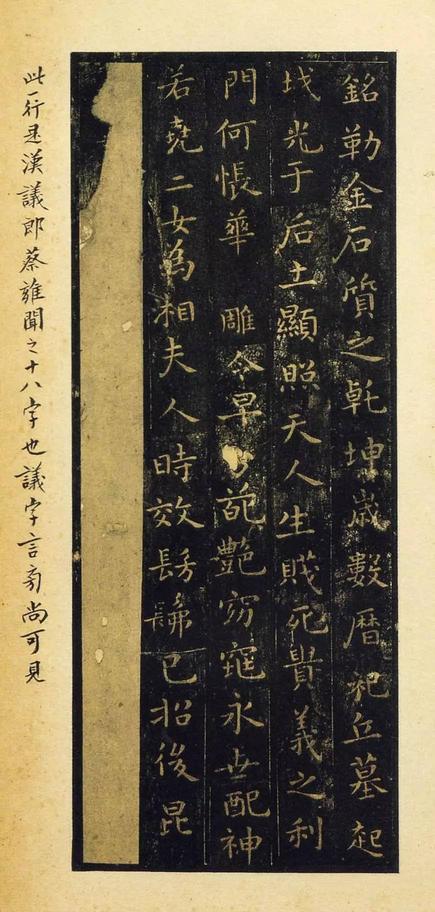 銘勒金石質之乹坤歲數曆祀丘墓起
坟光于后土顯照天人生賤死貴義之利
門何悵華雕令早葩艷窈窕永世配神
若堯二女為相夫人時效髣髴㠯招後昆
此一行是漢議郎蔡雝聞之十八字也議字言旁尚可見